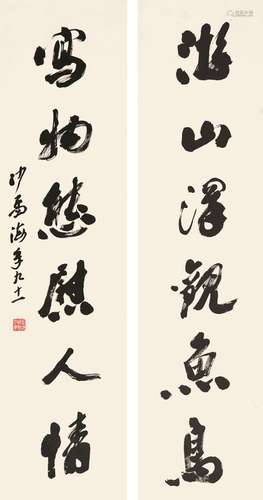 游山澤觀魚鳥
寫物態慰人情
沙孟海年九十一